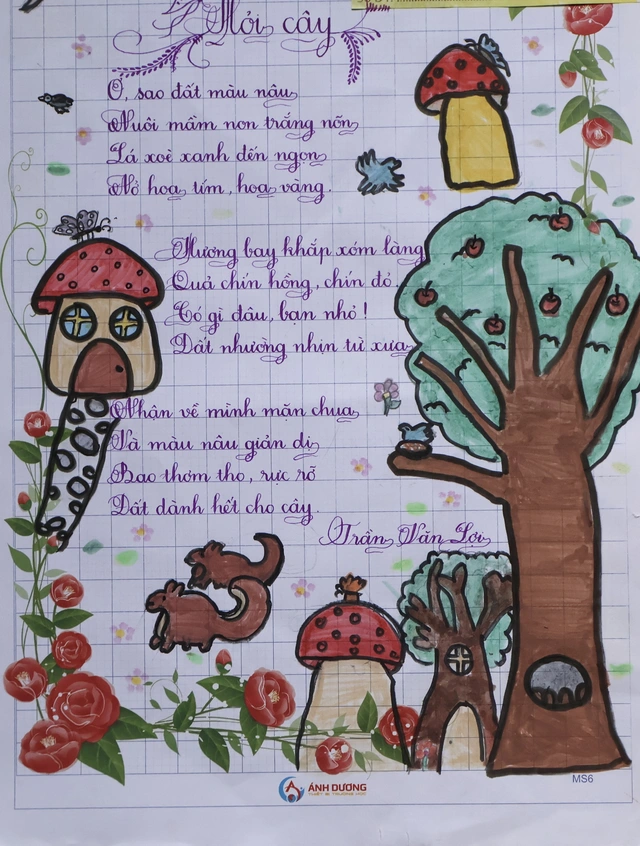 Hỏi cây
Ơ, sao đất màu nâu
Nuôi mầm non trắng nõn
Lá xoè xanh đến ngọn
Nở hoa tím, hoa vàng.
Hương bay khắp xóm làng
Quả chín hồng, chín đỏ
Có gì đâu, bạn nhỏ!
Đất nhường nhịn từ xưa
Nhận về mình mặn chua
Và màu nâu giản dị
Bao thơm tho, rực rỡ
Đất dành hết cho cây.
Trần Văn Lợi
MS6
ÁNH DƯƠNG
THIẾT BỊ TRƯỜNG HỌC